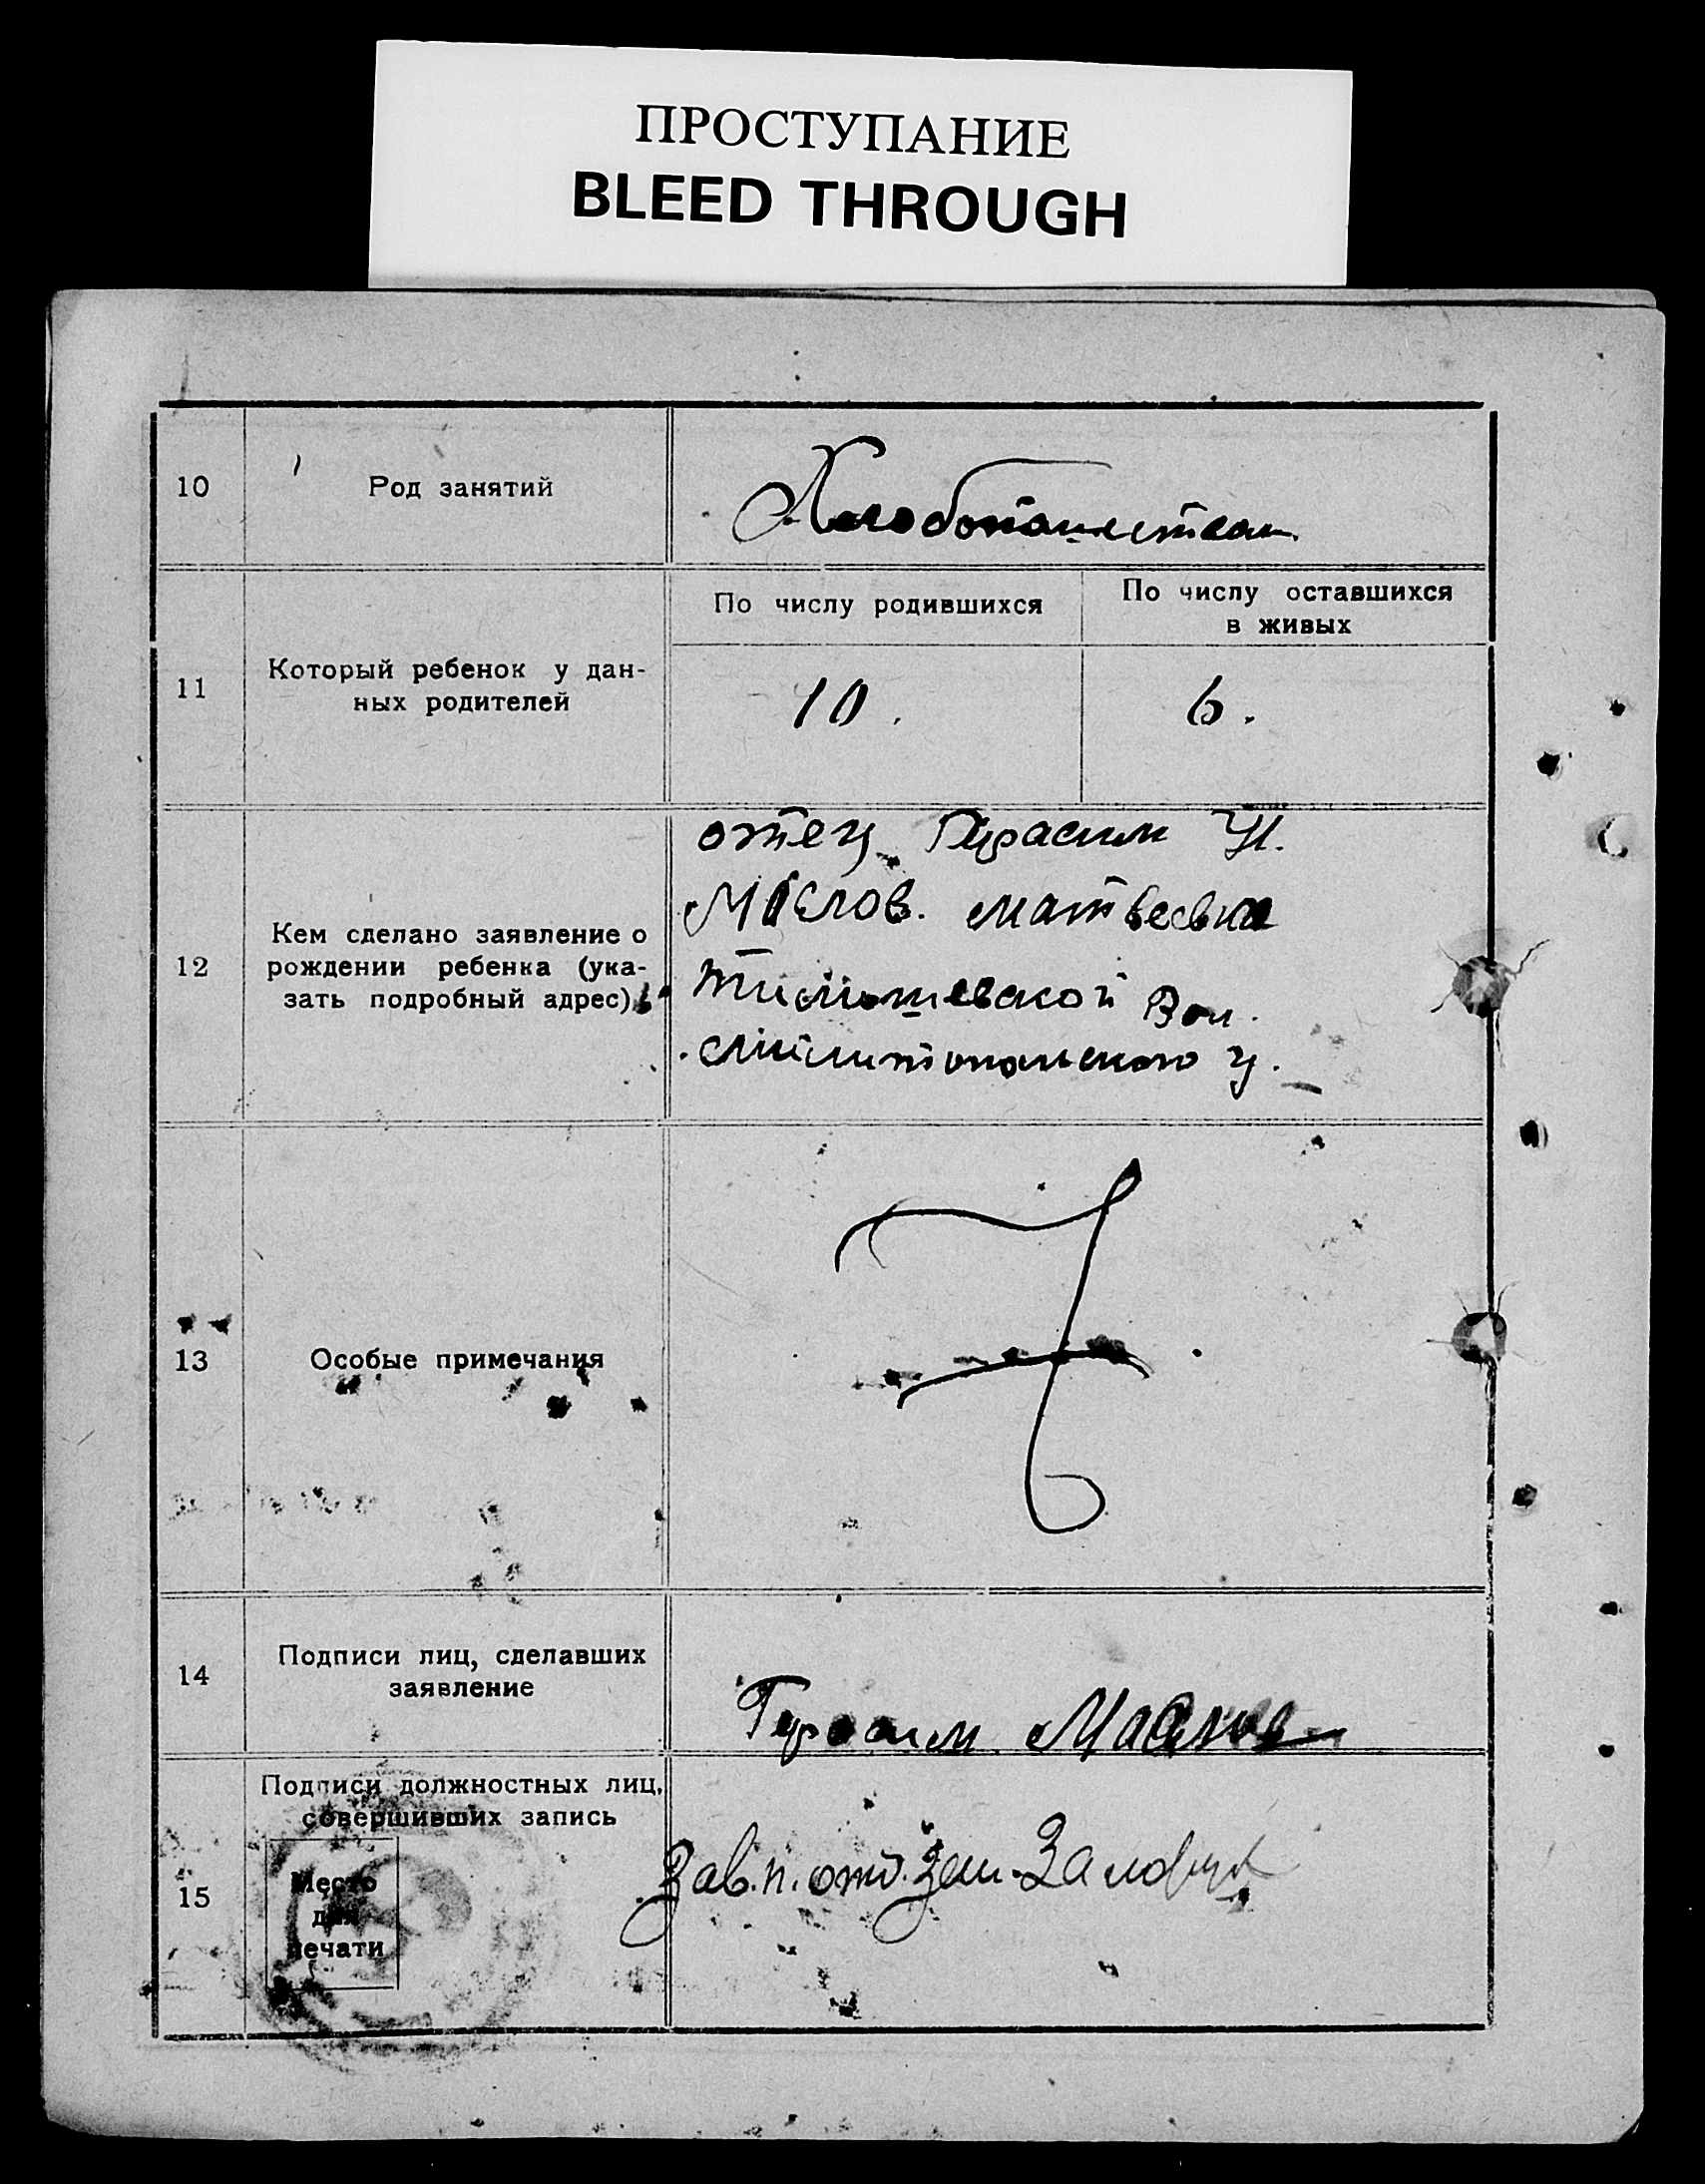 ПРОСТУПАНИЕ
BLEED THROUGH
10
Род занятий
Хлебопашество
11
Который ребенок у дан-
ных родителей
По числу родившихся
По числу оставшихся
в живых
10.
6.
12
Кем сделано заявление о
рождении ребенка (ука-
зать подробный адрес)
отец Герасим И.
Маслов. Матвеевка
Тимошевской Вол.
Мелитопольского у.
13
Особые примечания
14
Подписи лиц, сделавших
заявление
Герасим Маслов
15
Подписи должностных лиц,
совершивших запись
Место
для
печати
Зав. п. отд.